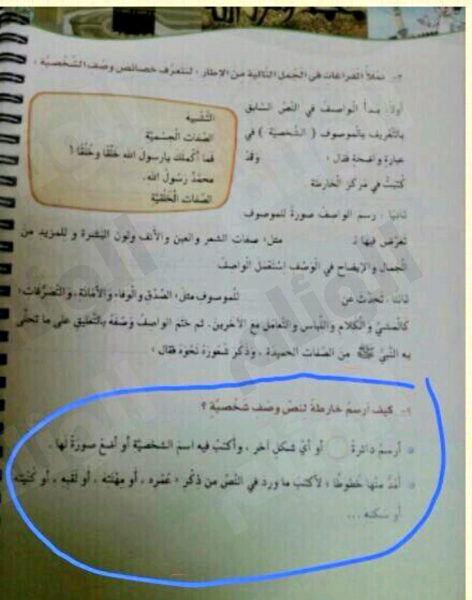 ٢- نملأ الفراغات في الجمل التالية من الإطار ، لنتعرف خصائص وصف الشخصية :
أولا: بدأ الواصف في النص السابق
بالتعريف بالموصوف ( الشخصية ) في
عبارة واضحة فقال : وقد
كتبت في مركز الخارطة
التشبيه
الصفات الجسمية
فما أكملك يارسول الله خلقا وخلقا !
محمد رسول الله.
الصفات الخلقية
ثانيا : رسم الواصف صورة للموصوف
تعرض فيها لـ مثل: صفات الشعر والعين والأنف ولون البشرة و للمزيد من
الجمال والإيضاح في الوصف استعمل الواصف
ثالثا: تحدث عن للموصوف مثل: الصدق والوفاء والأمانة، والتصرفات:
كالمشي والكلام واللباس والتعامل مع الآخرين. ثم ختم الواصف وصفه بالتعليق على ما تحلى
به النبي ﷺ من الصفات الحميدة ، وذكر شعوره نحوه فقال :
كيف أرسم خارطة لنص وصف شخصية ؟
أرسم دائرة أو أي شكل آخر ، وأكتب فيه اسم الشخصية أو أضع صورة لها .
أمد منها خطوطا ؛ لأكتب ما ورد في النص من ذكر : عمره ، أو مهنته ، أو لقبه ، أو كنيته
أو سكنه ...